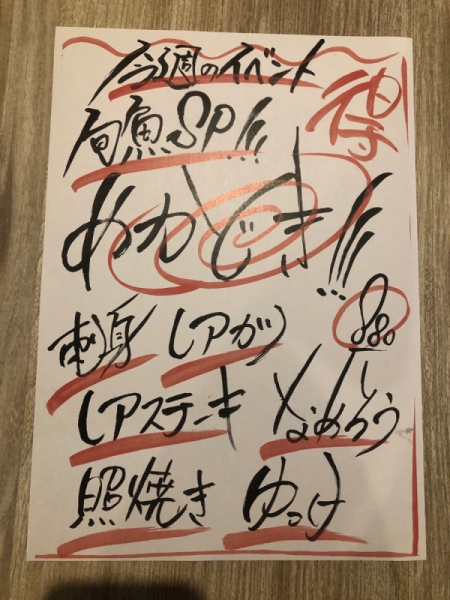 今週のイベント
得
旬魚SP!!!
めかじき!!!
880
刺身 レアカツ
レアステーキ なめろう
照焼き ゆっけ